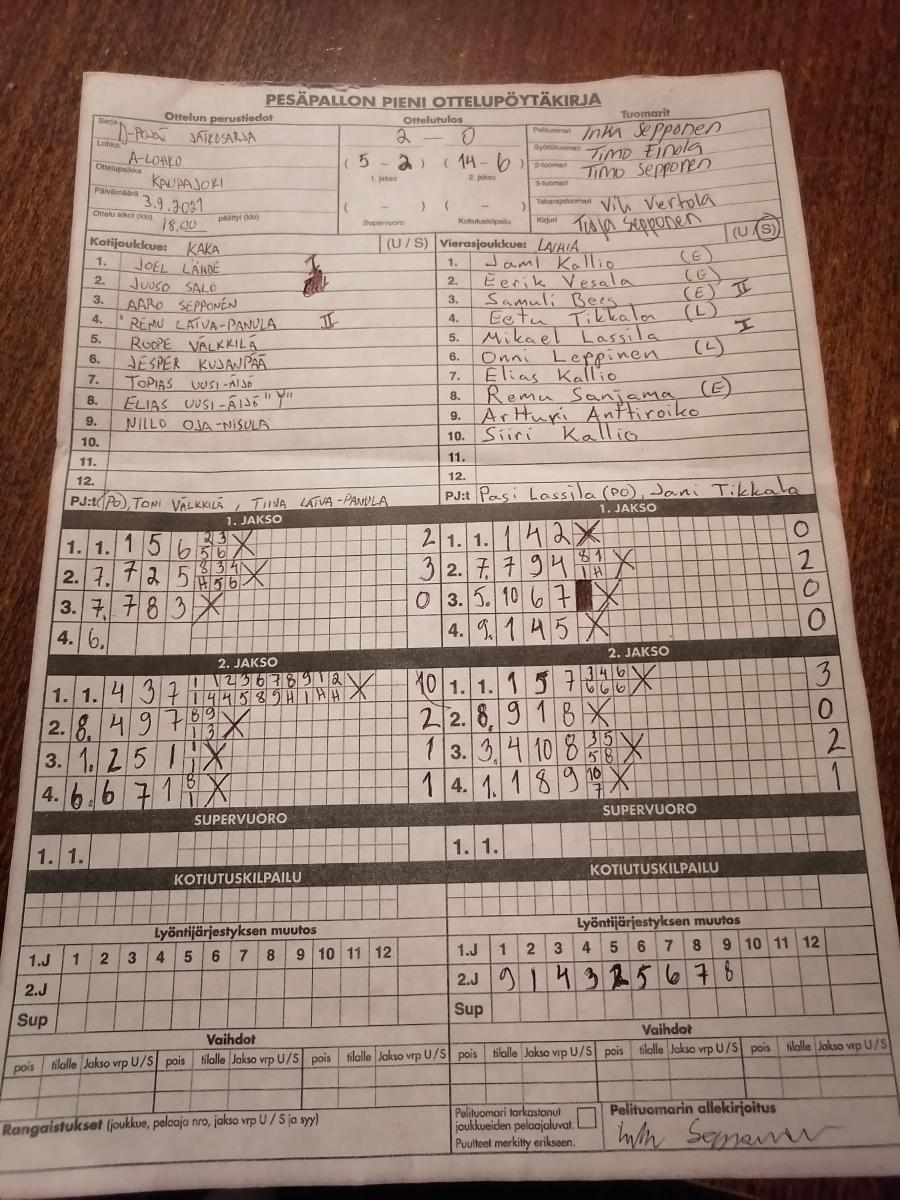 PESÄPALLON PIENI OTTELUPÖYTÄKIRJA
Ottelun perustiedot Ottelutulos Tuomarit
Sarja D-POJAT JATKOSARJA
Lohko A-LOHKO
Ottelupaikka KAUHAJOKI
Päivämäärä 3.9.2021
Ottelu alkoi (klo) 18.00 päättyi (klo)
2 – 0
( 5 - 2 ) ( 14 - 6 )
1. jakso 2. jakso
( - ) ( - )
Supervuoro Kotiutuskilpailu
Pelituomari Inka Sepponen
Syöttötuomari Timo Einola
2-tuomari Timo Sepponen
3-tuomari
Takarajatuomari Vertola
Kirjuri Sepponen
Kotijoukkue: KAKA (U / S)
1. JOEL LÄHDE I
2. JUUSO SALO
3. AARO SEPPONEN
4. REMU LATVA-PANULA II
5. ROOPE VÄLKKILÄ
6. JESPER KUJANPÄÄ
7. TOPIAS UUSI-ÄIJÖ
8. ELIAS UUSI-ÄIJÖ "Y"
9. NIILO OJA-NISULA
10.
11.
12.
PJ:t (PO), TONI VÄLKKILÄ, TIINA LATVA-PANULA
Vierasjoukkue: LAIHIA (U / S)
1. Jami Kallio (E)
2. Eerik Vesala (E)
3. Samuli Berg (E) II
4. Eetu Tikkala (L)
5. Mikael Lassila I
6. Onni Leppinen (L)
7. Elias Kallio
8. Remu Sanjama (E)
9. Artturi Anttiroiko
10. Siiri Kallio
11.
12.
PJ:t Pasi Lassila (PO), Jani Tikkala
1. JAKSO
1. 1. 1 5 6 2 3 X 2
5 6
2. 7. 7 2 5 8 3 4 X 3
H 5 6
3. 7. 7 8 3 X 0
4. 6.
1. JAKSO
1. 1. 1 4 2 X 0
2. 7. 7 9 4 8 1 X 2
1 H
3. 5. 10 6 7 X 0
4. 9. 1 4 5 X 0
2. JAKSO
1. 1. 4 3 7 1 1 2 3 6 7 8 9 1 2 X 10
1 4 4 5 8 9 H 1 H H
2. 8. 4 9 7 8 9 X 2
1 3
3. 1. 2 5 1 1 X 1
1
4. 6. 6 7 1 8 X 1
1
2. JAKSO
1. 1. 1 5 7 3 4 6 X 3
6 6 6
2. 8. 9 1 8 X 0
3. 3. 4 10 8 3 5 X 2
5 8
4. 1. 1 8 9 10 X 1
7
SUPERVUORO
1. 1.
SUPERVUORO
1. 1.
KOTIUTUSKILPAILU
KOTIUTUSKILPAILU
Lyöntijärjestyksen muutos
1.J 1 2 3 4 5 6 7 8 9 10 11 12
2.J
Sup
Lyöntijärjestyksen muutos
1.J 1 2 3 4 5 6 7 8 9 10 11 12
2.J 9 1 4 3 2 5 6 7 8
Sup
Vaihdot
pois tilalle Jakso vrp U / S pois tilalle Jakso vrp U / S pois tilalle Jakso vrp U / S
Vaihdot
pois tilalle Jakso vrp U / S pois tilalle Jakso vrp U / S pois tilalle Jakso vrp U / S
Rangaistukset (joukkue, pelaaja nro, jakso vrp U / S ja syy)
Pelituomari tarkastanut
joukkueiden pelaajaluvat.
Puutteet merkitty erikseen.
Pelituomarin allekirjoitus